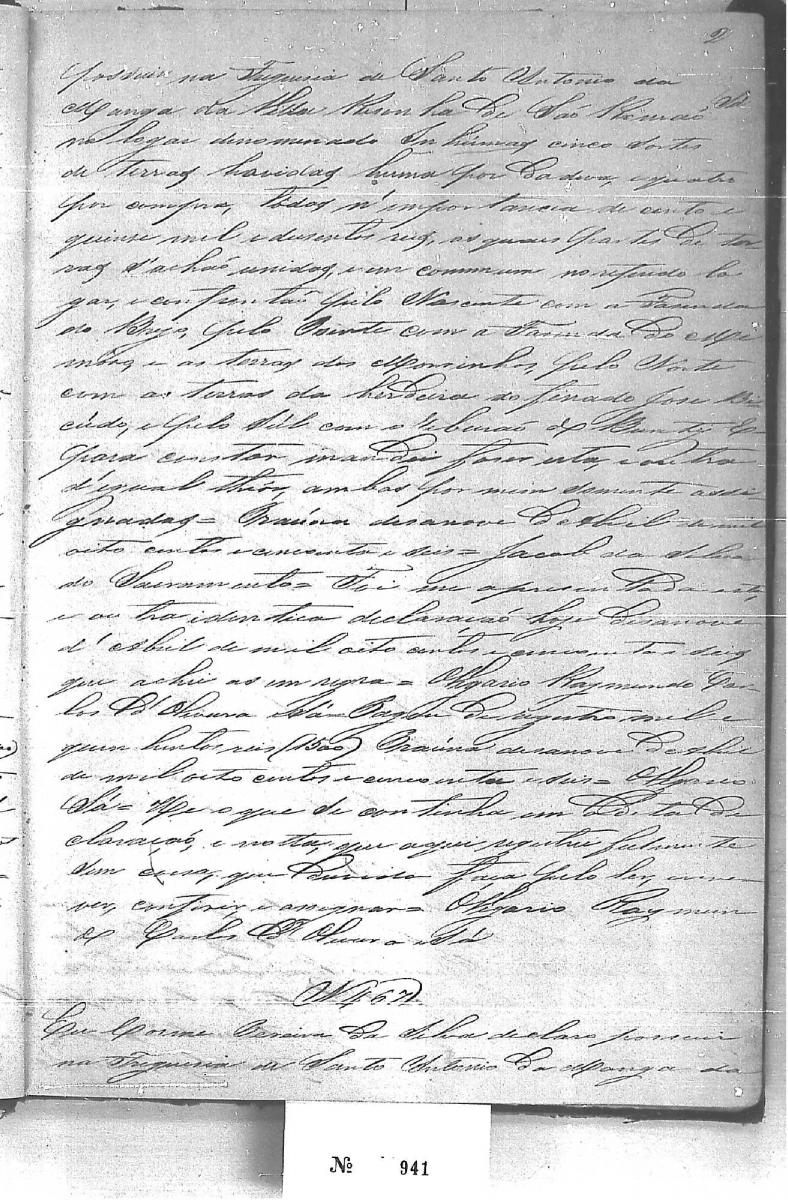 2
possuir na Freguesia de Santo Antonio da
Manga da Villa Risonha de São Romaõ, Sá
no logar denominado Inhúmas cinco sortes
de terras havidas huma por dadiva, e quatro
por compra, todas n'importancia de cento e
quinse mil e dusentos reis, as quaes partes de ter
ras s'achaõ unidas, e em commum no referido lo
gar, e confrontaõ pelo Nascente com a Fasenda
do Brejo, pelo Poente com a Fasenda do
e as terras dos pelo Norte
com as terras da herdeira do finado José Bi
cudo, e pelo Sul com o Ribeiraõ de E
para constar mandei faser esta, e outra
d'igual theor, ambas por mim somente assi
gnadas = Braúna desanove de Abril de mil
oito centos e cincoenta e seis = Jacob da Silva
do Sacramento = Foi me apresentada esta,
e outra identica declaraçaõ hoje desanove
d'Abril de mil oito centos e cincoenta e seis
que achei as em regra = Olegario Raymundo Car
los d'Oliveira Sá = Pagou de registro mil e
quinhentos reis (1500) Braúna desanove de Abril
de mil oito centos e cincoenta e seis = Olegario
Sá = He o que se continha em dita de
claraçaõ, e notta, que aqui registrei fielmente
sem cousa, que duvida faça pelo ler, escre
ver, conferir, e assignar = Olegario Raymun
do Carlos d'Oliveira e Sá
N 467.
Eu Cosme Pereira da Silva declaro possuir
na Freguesia de Santo Antonio da Manga da
2
Nº 941